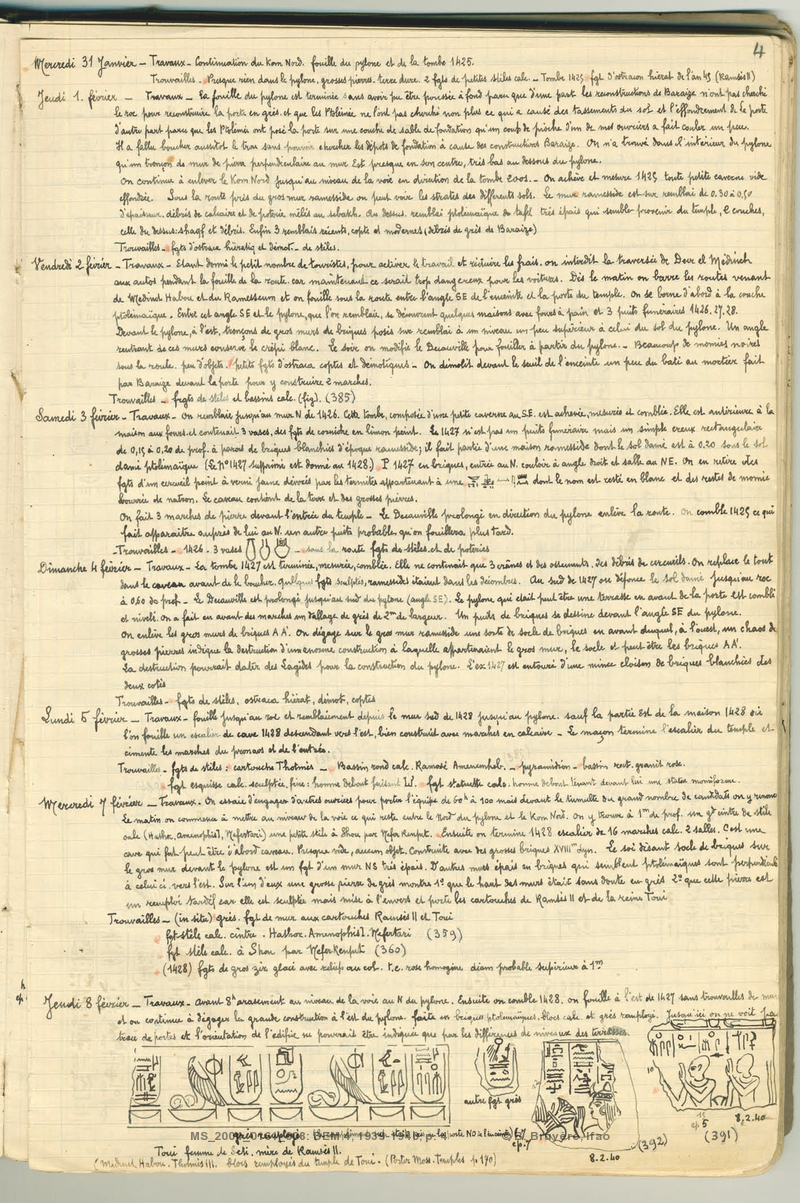 4
Mercredi 31 Janvier – Travaux – Continuation du Kom Nord. fouille du pylone et de la tombe 1425.
Trouvailles – Presque rien dans le pylone. grosses pierres. terre dure. 2 fgts de petites stèles calc. – Tombe 1425 fgt d'ostracon hiérat de l'an 45 (Ramsès II)
Jeudi 1. février – Travaux – La fouille du pylone est terminée sans avoir pu être poussée à fond parce que d'une part les reconstructions de Baraize n'ont pas cherché
le roc pour reconstruire la porte en grès et que les Ptolémées ne l'ont pas cherché non plus ce qui a causé des tassements du sol et l'effondrement de la porte
d'autre part parce que les Ptolémées ont posé la porte sur une couche de sable de fondation qu'un coup de pioche d'un de mes ouvriers a fait couler un peu.
Il a fallu boucher aussitot le trou sans pouvoir chercher les dépots de fondation à cause des constructions Baraize. On n'a trouvé dans l'intérieur du pylone
qu'un tronçon de mur de pierre perpendiculaire au mur Est presque en son centre, très bas au dessous du pylone.
On continue à enlever le Kom Nord jusqu'au niveau de la voie en direction de la tombe 2005. – On achève et mesure 1425 toute petite caverne vide
effondrée. Sous la route près du gros mur ramesside on peut voir les strates des différents sols. Le mur ramesside est sur remblai de 0.30 à 0,50
d'épaisseur, débris de calcaire et de poterie mêlés au sebakh. Au dessus, remblai ptolémaïque du tafl très épais qui semble provenir du temple, 2 couches,
celle du dessus: shagf et débris. Enfin 3 remblais récents, copte et modernes, (débris de grès de Baraize)
Trouvailles – fgts d'ostraca hiératiq et démot. – de stèles.
Vendredi 2 février – Travaux – Etant donné le petit nombre de touristes, pour activer le travail et réduire les frais, on interdit la traversée de Deir el Médineh
aux autos pendant la fouille de la route. car maintenant ce serait trop dangereux pour les voitures. Dès le matin on barre les routes venant
de Médinet Habou et du Ramesseum et on fouille sous la route entre l'angle SE de l'enceinte et la porte du temple. On se borne d'abord à la couche
ptolémaïque. Entre cet angle SE et le pylone, que l'on remblaie, se découvrent quelques maisons avec fours à pain et 3 puits funéraires 1426. 27. 28.
Devant le pylone, à l'est, tronçons de gros murs de briques posés sur remblai à un niveau un peu supérieur à celui du sol du pylone. Un angle
rentrant de ces murs conserve le crépi blanc. Le soir on modifie le Decauville pour fouiller à partir du pylone. – Beaucoup de momies noires
sous la route. peu d'objets. petits fgts d'ostraca coptes et démotiques. – On démolit devant le seuil de l'enceinte un peu du bati au mortier fait
par Baraize devant la porte pour y construire 2 marches.
Trouvailles – fragts de stèles et bassins calc. (fig). (385)
Samedi 3 février – Travaux – On remblaie jusqu'au mur N de 1426. Cette tombe, composée d'une petite caverne au SE. est achevée, mesurée et comblée. Elle est antérieure à la
maison aux fours, et contenait 3 vases, des fgts de corniche en limon peint. Le 1427 n'est pas un puits funéraire mais un simple creux rectangulaire
de 0,15 à 0.20 de prof. à parois de briques blanchies d'époque ramesside; il fait partie d'une maison ramesside dont le sol damé est à 0.20 sous le sol
damé ptolémaïque (Le N° 1427 supprimé est donné au 1428.) P. 1427 en briques, entrée au N. couloir à angle droit et salle au NE. On en retire des
fgts d'un cercueil peint à verni jaune dévorés par les termites appartenant à une dont le nom est resté en blanc et des restes de momie
bourrée de natron. Le caveau contient de la terre et des grosses pierres.
On fait 3 marches de pierre devant l'entrée du temple – Le Decauville prolongé en direction du pylone enlève la route. On comble 1425 ce qui
fait apparaître auprès de lui au N. un autre puits probable qu'on fouillera plus tard.
Trouvailles – 1426. 3 vases – sous la route fgts de stèles et de poteries
Dimanche 4 février – Travaux – La tombe 1427 est terminée, mesurée, comblée. Elle ne contenait que 3 crânes et des ossements, des débris de cercueils. On replace le tout
dans le caveau avant de la boucher. Quelques fgts sculptés, ramessides étaient dans les décombres. Au sud de 1427 on défonce le sol damé jusqu'au roc
à 0.60 de prof – Le Decauville est prolongé jusqu'au sud du pylone (angle SE). Le pylone qui était peut être une terrasse en avant de la porte est comblé
et nivelé. On a fait en avant des marches un dallage de grès de 2m de largeur. Un puits de briques se dessine devant l'angle SE du pylone.
On enlève les gros murs de briques A A'. On dégage sur le gros mur ramesside une sorte de socle de briques en avant duquel, à l'ouest, un chaos de
grosses pierres indique la destruction d'une énorme construction à laquelle appartenaient le gros mur, le socle et peut être les briques A A'.
La destruction pourrait dater des Lagides pour la construction du pylone. L'ex 1427 est entouré d'une mince cloison de briques blanchies des
deux cotés
Trouvailles – fgts de stèles, ostraca hiérat, démot, coptes
Lundi 5 février – Travaux – fouille jusqu'au roc et remblaiement depuis le mur sud de 1428 jusqu'au pylone. sauf la partie Est de la maison 1428 où
l'on fouille un escalier de cave 1428 descendant vers l'est, bien construit avec marches en calcaire. – Le maçon termine l'escalier du temple et
cimente les marches du pronaos et de l'entrée.
Trouvailles – fgts de stèles: cartouche Thotmès – Bassin rond calc. Ramosé Amenemhab. – pyramidion – bassin rect. granit rose.
fgt esquisse calc. sculptée, fine: homme debout faisant. fgt statuette calc. homme debout tenant devant lui une statue momiforme.
Mercredi 7 février – Travaux. On essaie d'engager d'autres ouvriers pour porter l'équipe de 60 à 100 mais devant le tumulte du grand nombre de candidats on y renonce
Le matin on commence à mettre au niveau de la voie ce qui reste entre le Nord du pylone et le Kom Nord. On y trouve à 1m de prof. un gd cintre de stèle
calc (Hathor, Amenophis I, Nefertari) une petite stèle à Shou par Neferkenput. Ensuite on termine 1428 escalier de 16 marches calc. 2 salles. C'est une
cave qui fut peut être d'abord caveau. Presque vide, aucun objet. Construite avec des grosses briques XVIIIe dyn. Le soi disant socle de briques sur
le gros mur devant le pylone est un fgt d'un mur NS très épais. D'autres murs épais en briques qui semblent ptolémaïques sont perpendicul
à celui ci vers l'est. Sur l'un d'eux une grosse pierre de grès montre 1° que le haut des murs était sans doute en grès 2° que cette pierre est
un remploi tardif car elle est sculptée mais mise à l'envers et porte les cartouches de Ramsès II et de la reine Toui
Trouvailles – (in situ) grès. fgt de mur aux cartouches Ramsès II et Toui
fgt stèle calc. cintre. Hathor. Amenophis I. Nefertari (359)
fgt stèle calc. à Shou par Neferkenput (360)
(1428) fgts de gros zir glacé avec relief au col. t.c. rose homogène diam probable supérieur à 1m
Jeudi 8 février – Travaux – avant 8h arasement au niveau de la voie au N du pylone. Ensuite on comble 1428. on fouille à l'est de 1427 sans trouvailles de
et on continue à dégager la grande construction à l'est du pylone. faite en briques ptolémaïques, blocs calc et grès remployés. Jusqu'ici on ne voit pa
trace de portes et l'orientation de l'édifice ne pourrait être indiquée que par les différences de niveaux des terrasses.
autre fgt grès
8.2.40
(391)
(392)
8.2.40
MS_2004_0 DEM 4, 1939-1940, p. 4 © B. Bruyère, Ifao
Toui femme de Seti. mère de Ramsès II.
(Médinet Habou. Thotmès III. blocs remployés du temple de Toui. (Porter Moss. Temples p. 170)